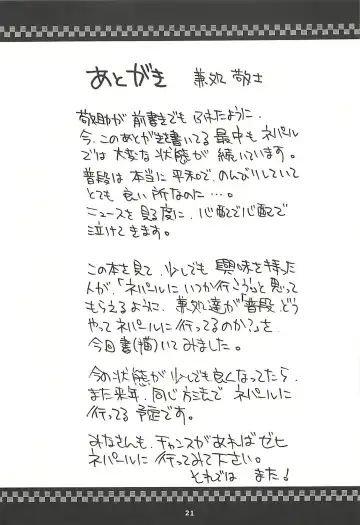 あとがき 兼処 敬士
敬助が前書きでもふれたように、
今、このあとがきを書いてる最中もネパール
では大変な状態が続いています。
普段は本当に平和で、のんびりしていて
とても良い所なのに…。
ニュースを見る度に、心配で心配で
泣けてきます。
この本を見て、少しでも興味を持った
人が、「ネパールにいつか行こう」と思って
もらえるように、兼処達が「普段、どう
やってネパールに行ってるのか?」を、
今回書(描)いてみました。
今の状態が少しでも良くなってたら、
また来年、同じ方法でネパールに
行ってる予定です。
みなさんも、チャンスがあればゼヒ
ネパールに行ってみて下さい。
それでは また!
21